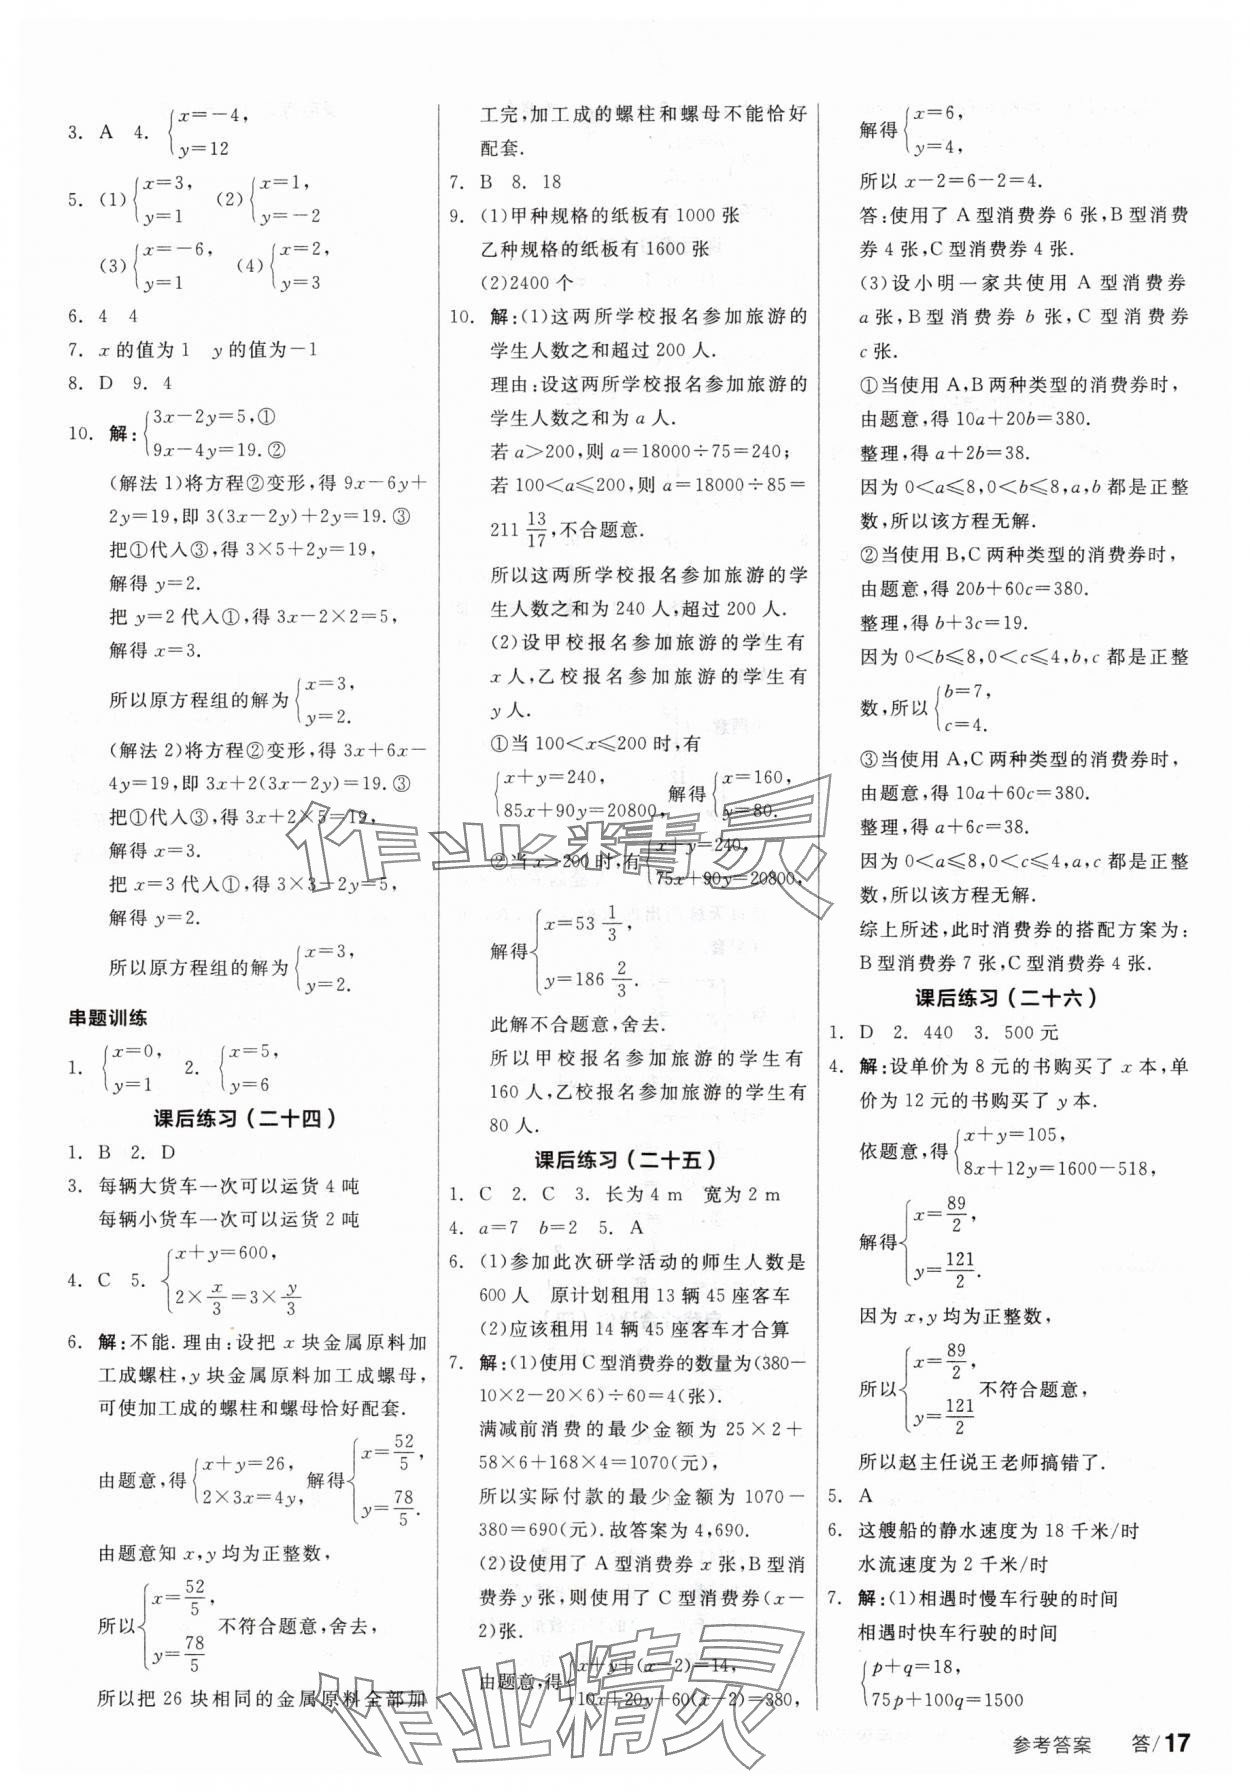 3. A 4. {x=-4,
y=12
5. (1){x=3, (2){x=1,
y=1 y=-2
(3){x=-6, (4){x=2,
y=1 y=3
6. 4 4
7. x的值为1 y的值为-1
8. D 9. 4
10. 解:{3x-2y=5,①
9x-4y=19.②
(解法1)将方程②变形,得9x-6y+
2y=19,即3(3x-2y)+2y=19.③
把①代入③,得3×5+2y=19,
解得y=2.
把y=2代入①,得3x-2×2=5,
解得x=3.
所以原方程组的解为{x=3,
y=2.
(解法2)将方程②变形,得3x+6x-
4y=19,即3x+2(3x-2y)=19.③
把①代入③,得3x+2×5=19,
解得x=3.
把x=3代入①,得3×3-2y=5,
解得y=2.
所以原方程组的解为{x=3,
y=2.
串题训练
1. {x=0, 2. {x=5,
y=1 y=6
课后练习(二十四)
1. B 2. D
3. 每辆大货车一次可以运货4吨
每辆小货车一次可以运货2吨
4. C 5. {x+y=600,
2×x/3=3×y/3
6. 解:不能.理由:设把x块金属原料加
工成螺柱,y块金属原料加工成螺母,
可使加工成的螺柱和螺母恰好配套.
由题意,得{x+y=26, 解得{x=52/5,
2×3x=4y, y=78/5.
由题意知x,y均为正整数,
所以{x=52/5 不符合题意,舍去,
y=78/5
所以把26块相同的金属原料全部加
工完,加工成的螺柱和螺母不能恰好
配套.
7. B 8. 18
9. (1)甲种规格的纸板有1000张
乙种规格的纸板有1600张
(2)2400个
10. 解:(1)这两所学校报名参加旅游的
学生人数之和超过200人.
理由:设这两所学校报名参加旅游的
学生人数之和为a人.
若a>200,则a=18000÷75=240;
若100<a≤200,则a=18000÷85=
211 13/17,不合题意.
所以这两所学校报名参加旅游的学
生人数之和为240人,超过200人.
(2)设甲校报名参加旅游的学生有
x人,乙校报名参加旅游的学生有
y人.
①当100<x≤200时,有
{x+y=240, 解得{x=160,
85x+90y=20800, y=80.
②当x>200时,有{x+y=240,
75x+90y=20800,
解得{x=53 1/3,
y=186 2/3.
此解不合题意,舍去.
所以甲校报名参加旅游的学生有
160人,乙校报名参加旅游的学生有
80人.
课后练习(二十五)
1. C 2. C 3. 长为4 m 宽为2 m
4. a=7 b=2 5. A
6. (1)参加此次研学活动的师生人数是
600人 原计划租用13辆45座客车
(2)应该租用14辆45座客车才合算
7. 解:(1)使用C型消费券的数量为(380-
10×2-20×6)÷60=4(张).
满减前消费的最少金额为25×2+
58×6+168×4=1070(元),
所以实际付款的最少金额为1070-
380=690(元).故答案为4,690.
(2)设使用了A型消费券x张,B型消
费券y张,则使用了C型消费券(x-
2)张.
由题意,得{x+y+(x-2)=14,
10x+20y+60(x-2)=380,
解得{x=6,
y=4,
所以x-2=6-2=4.
答:使用了A型消费券6张,B型消费
券4张,C型消费券4张.
(3)设小明一家共使用A型消费券
a张,B型消费券b张,C型消费券
c张.
①当使用A,B两种类型的消费券时,
由题意,得10a+20b=380.
整理,得a+2b=38.
因为0<a≤8,0<b≤8,a,b都是正整
数,所以该方程无解.
②当使用B,C两种类型的消费券时,
由题意,得20b+60c=380.
整理,得b+3c=19.
因为0<b≤8,0<c≤4,b,c都是正整
数,所以{b=7,
c=4.
③当使用A,C两种类型的消费券时,
由题意,得10a+60c=380.
整理,得a+6c=38.
因为0<a≤8,0<c≤4,a,c都是正整
数,所以该方程无解.
综上所述,此时消费券的搭配方案为:
B型消费券7张,C型消费券4张.
课后练习(二十六)
1. D 2. 440 3. 500元
4. 解:设单价为8元的书购买了x本,单
价为12元的书购买了y本.
依题意,得{x+y=105,
8x+12y=1600-518,
解得{x=89/2,
y=121/2.
因为x,y均为正整数,
所以{x=89/2, 不符合题意,
y=121/2
所以赵主任说王老师搞错了.
5. A
6. 这艘船的静水速度为18千米/时
水流速度为2千米/时
7. 解:(1)相遇时慢车行驶的时间
相遇时快车行驶的时间
{p+q=18,
75p+100q=1500
作业精灵
作业精灵
参考答案 答/17